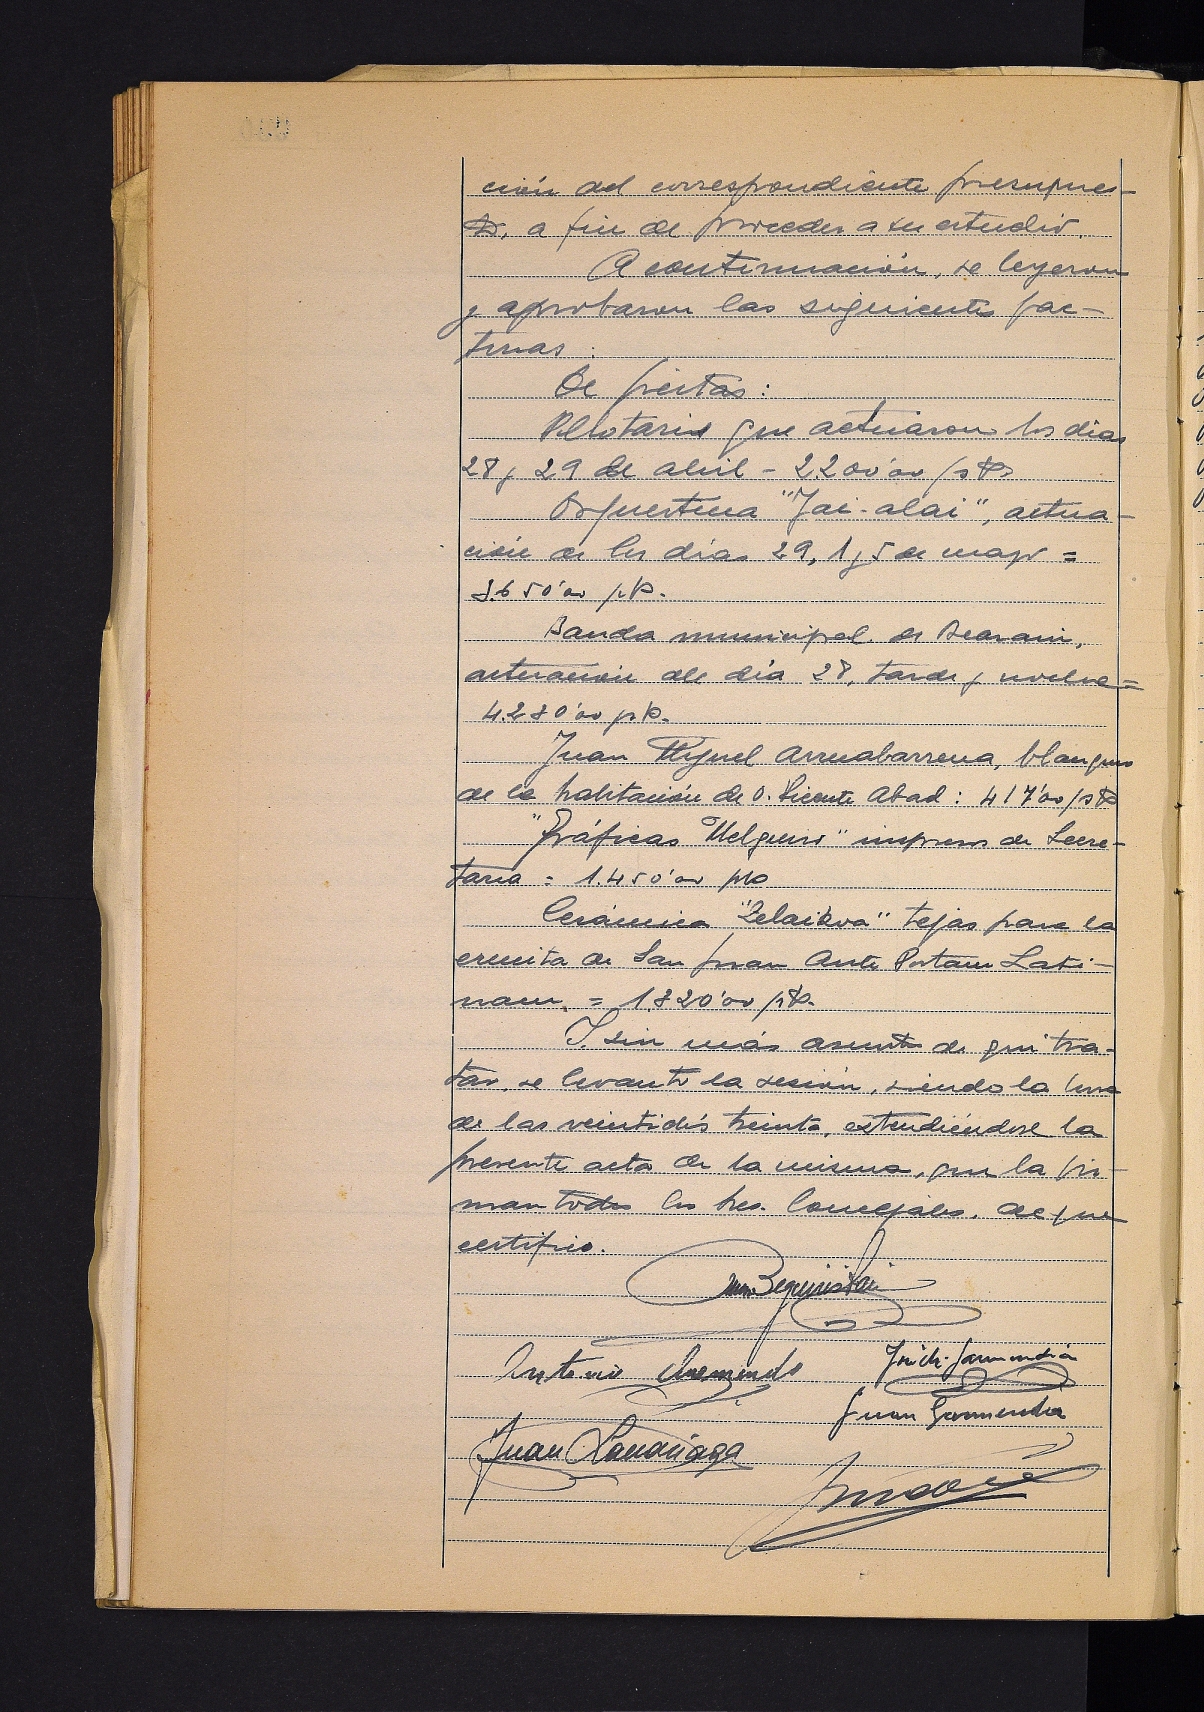 ción del correspondiente presupues-
to, a fin de proceder a su estudio.
A continuación, se leyeron
y aprobaron las siguientes fac-
turas:
De fiestas:
Pelotaris que actuaron los días
28 y 29 de abril - 2.200'00 pts
Orquestina "Jai-alai", actua-
ción de los días 29, 1 y 5 de mayo =
3.650'00 pts.
Banda municipal de Beasain,
actuación del día 28, tarde y noche =
4.280'00 pts.
Juan Miguel Arruabarrena, blanqueo
de la habitación de D. Vicente Abad: 417'00 pts
"Gráficas Melguiro" impresos de Secre-
taria = 1.450'00 pts
Cerámica "Zelaikoa" tejas para la
ermita de San Juan Ante Portam Lati-
nam. = 1.820'00 pts.
Y sin más asuntos de que tra-
tar, se levantó la sesión, siendo la hora
de las veintidós treinta, extendiéndose la
presente acta de la misma, que la fir-
man todos los Sres. Concejales, de que
certifico.
Beguiristain
Antonio
Garmendia
Juan Garmendia
Juan Larrañaga